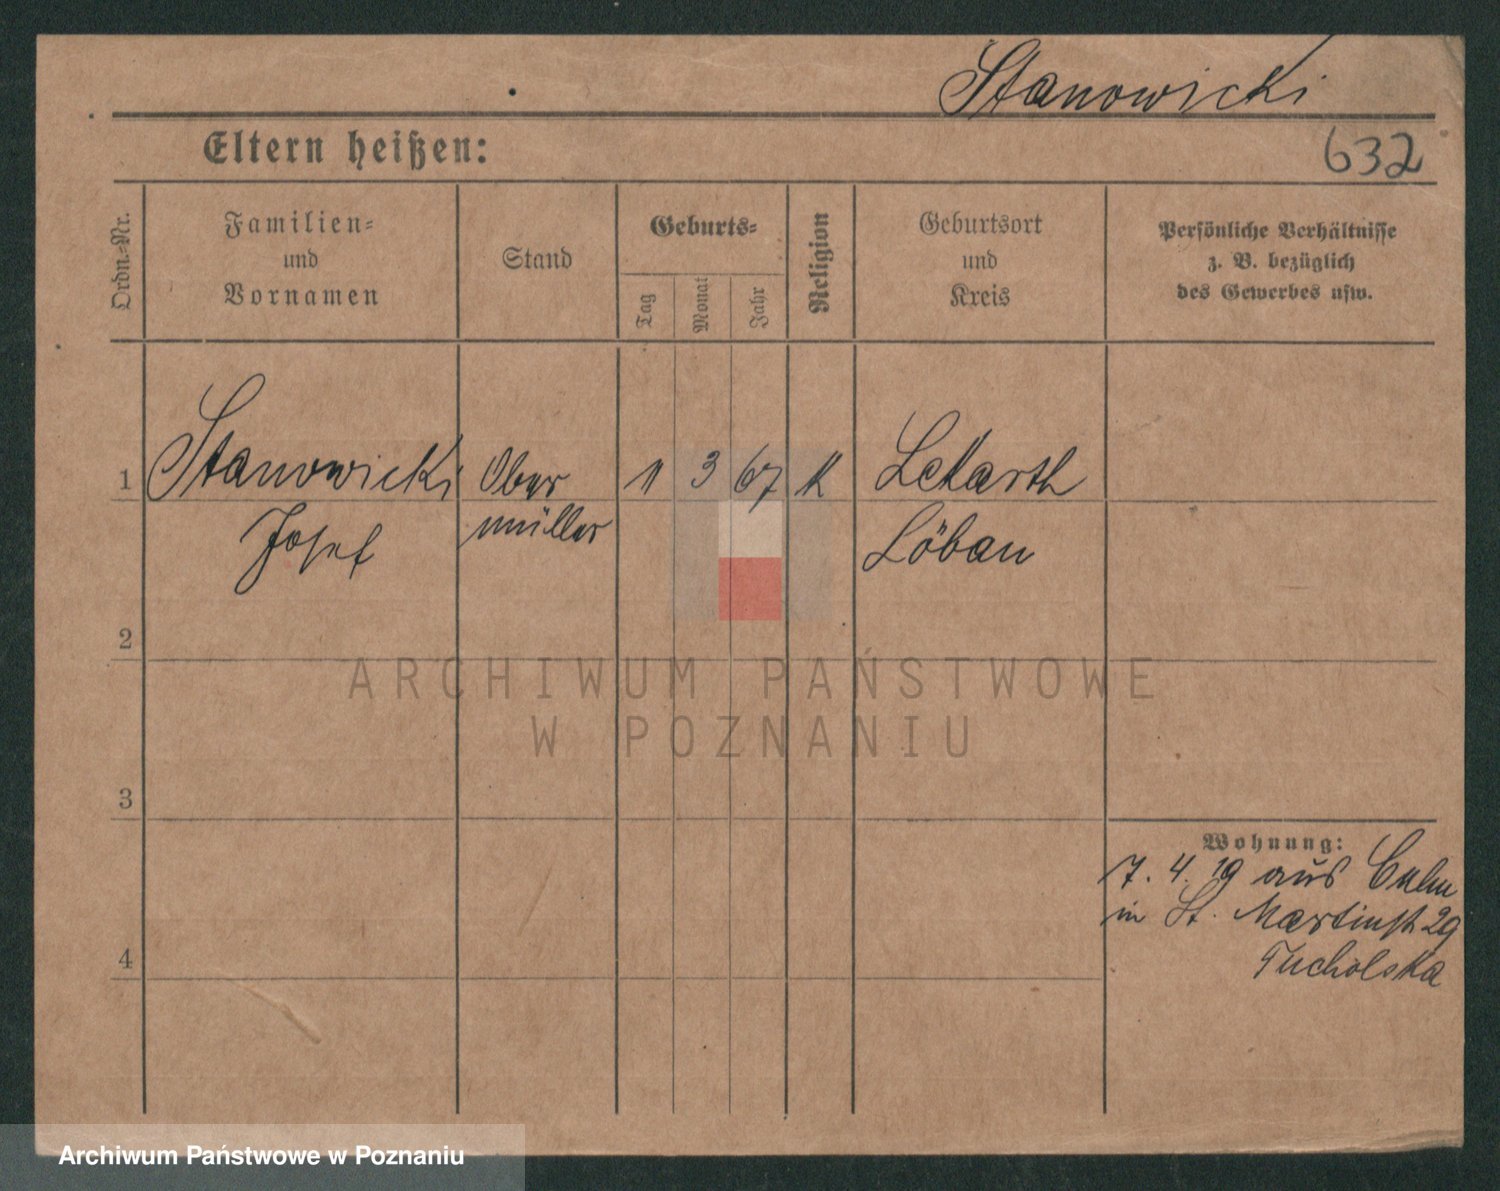 Stanowicki
Eltern heißen:
632
Ordn.-Nr.
Familien-
und
Vornamen
Stand
Geburts-
Tag
Monat
Jahr
Religion
Geburtsort
und
Kreis
Persönliche Verhältnisse
z. B. bezüglich
des Gewerbes usw.
1
Stanowicki
Josef
Ober
müller
11
3
67
K
Lekarth
Löbau
2
ARCHIWUM PAŃSTWOWE
W POZNANIU
3
4
Wohnung:
7. 4. 19 aus Culm
in St. Martinstr 29
Tucholska
Archiwum Państwowe w Poznaniu